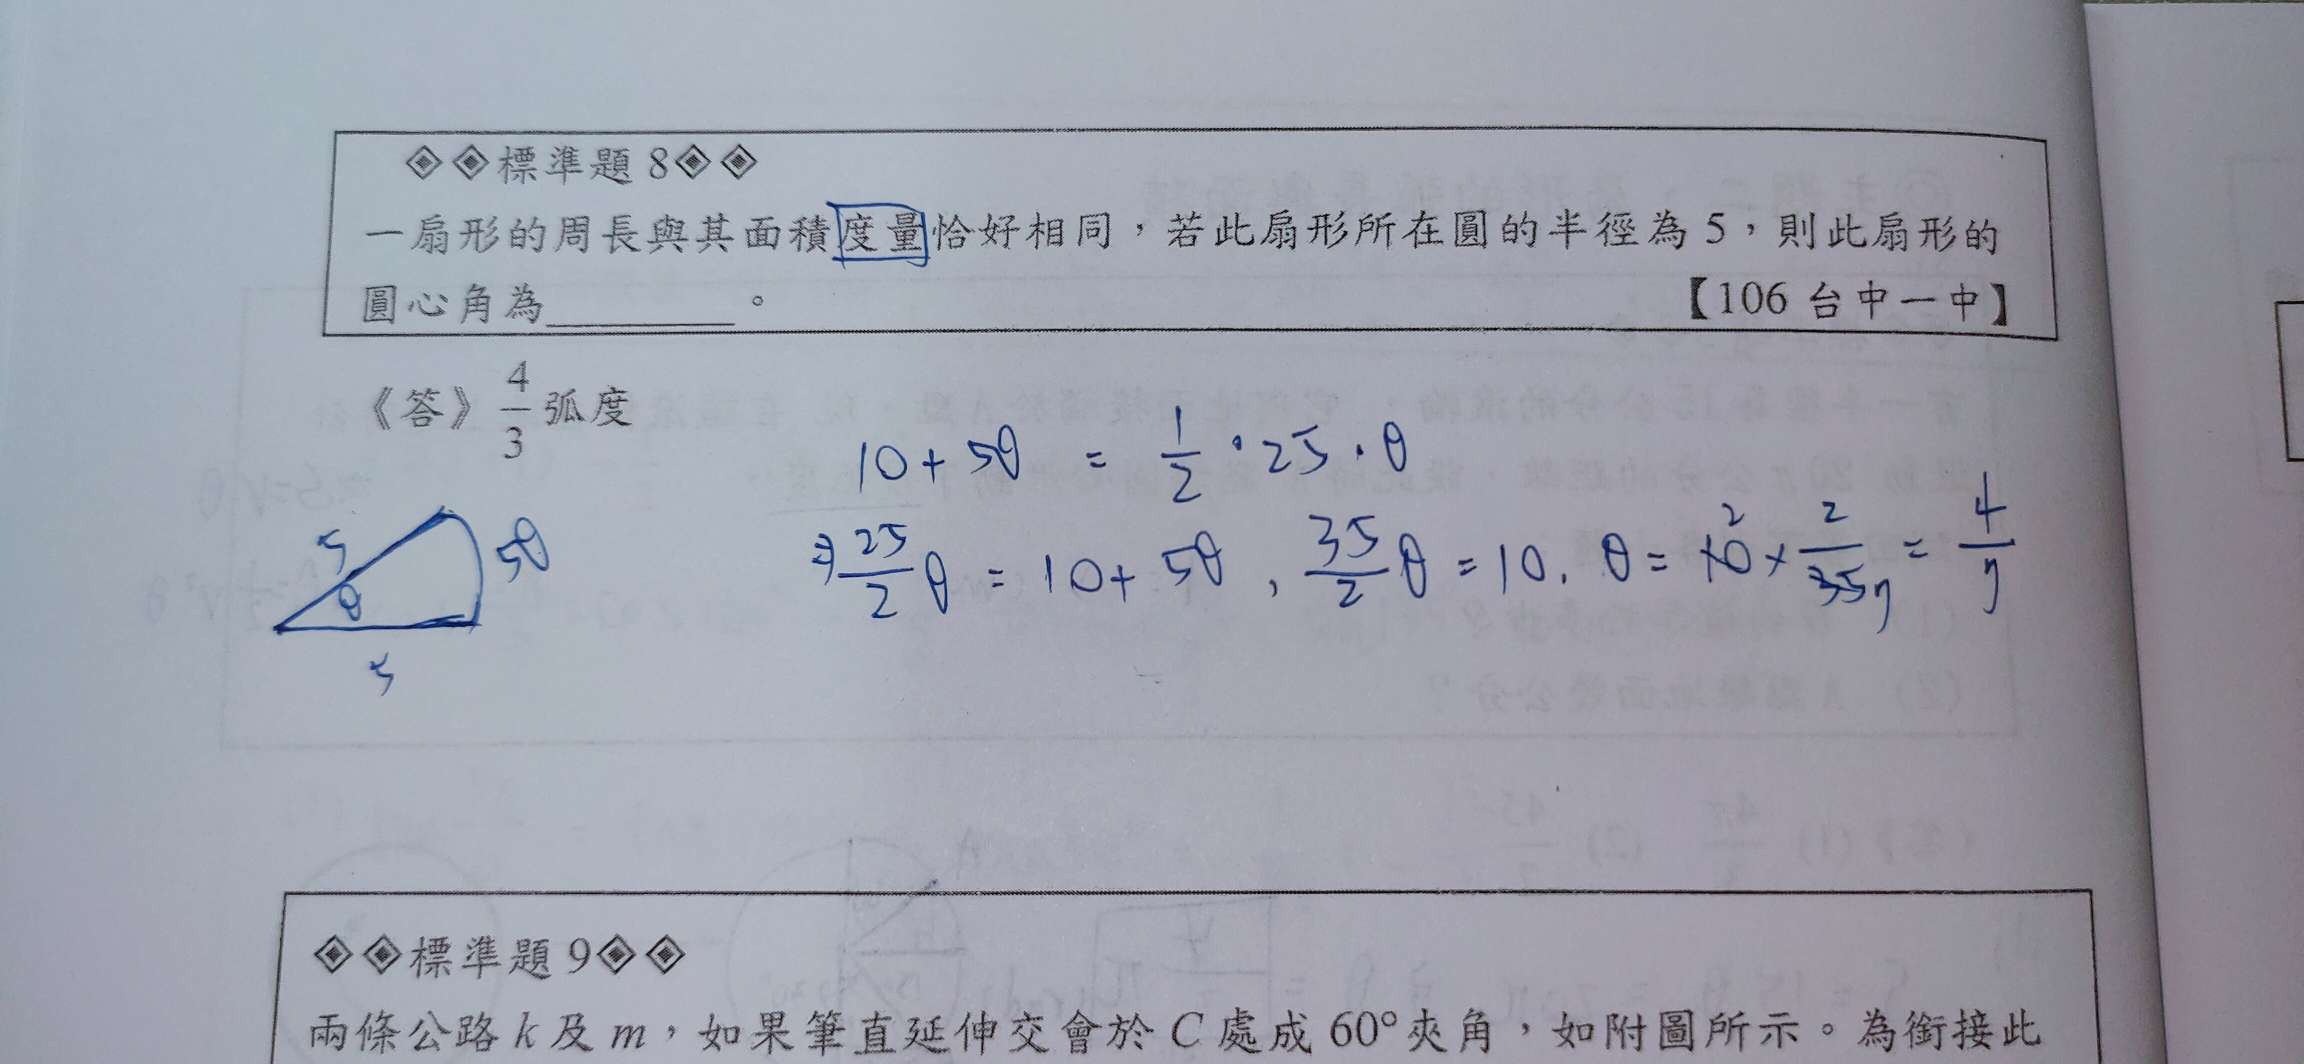 ◈◈標準題 8◈◈
一扇形的周長與其面積度量恰好相同，若此扇形所在圓的半徑為 5，則此扇形的
圓心角為________。 【106 台中一中】
《答》4/3 弧度
10 + 5θ = 1/2 · 25 · θ
⇒ 25/2 θ = 10 + 5θ , 35/2 θ = 10 . θ = 10 2 × 2/35 7 = 4/7
5
5θ
θ
5
◈◈標準題 9◈◈
兩條公路 k 及 m，如果筆直延伸交會於 C 處成 60° 夾角，如附圖所示。為銜接此